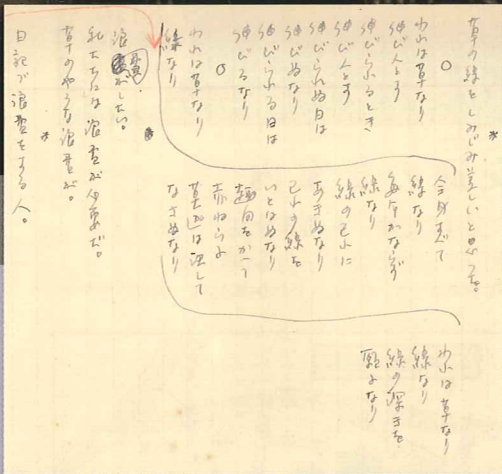 草の緑をしみじみ美しいと思った。
○
われは草なり
伸びんとす
伸びられるとき
伸びんとす
伸びられぬ日は
伸びぬなり
伸びられる日は
伸びるなり
○
われは草なり
緑なり
全身すべて
緑なり
毎年かならず
緑なり
緑の己れに
あきぬなり
己れの緑を
いとはぬなり
趣向をかへて
赤ねらふ
莫迦は決して
なさぬなり
われは草なり
緑なり
緑の深きを
願ふなり
浪費がしたい。
私たちには浪費が必要だ。
草のやうな浪費が。
日記で浪費をする人。